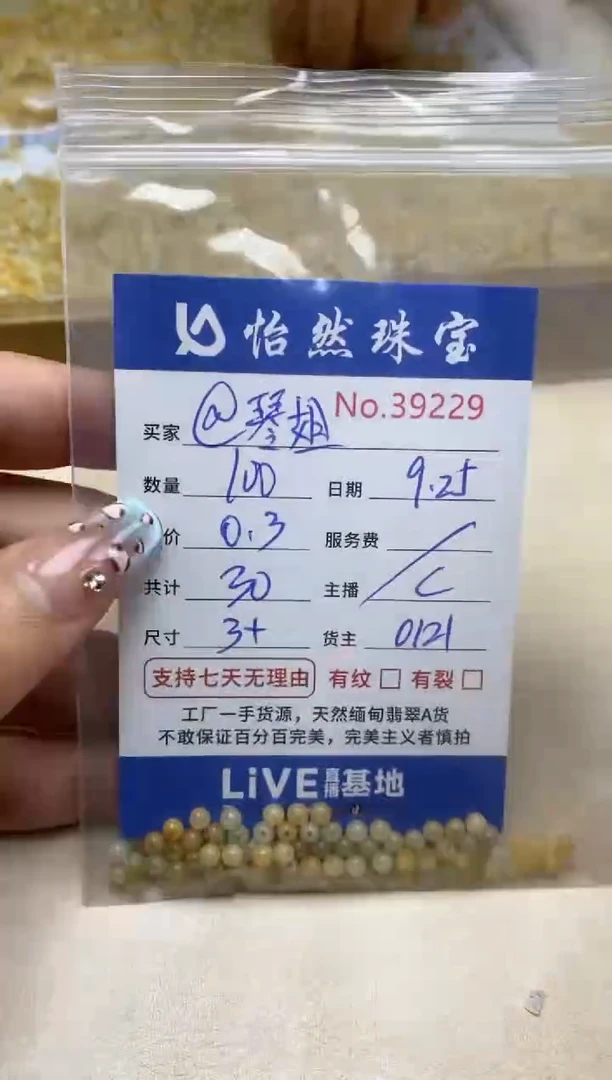 怡然珠宝
No.39229
买家 @琴姐
数量 100 日期 9.25
价 0.3 服务费 /
共计 30 主播 C
尺寸 3+ 货主 0121
支持七天无理由 有纹 □ 有裂 □
工厂一手货源，天然缅甸翡翠A货
不敢保证百分百完美，完美主义者慎拍
LiVE直播基地